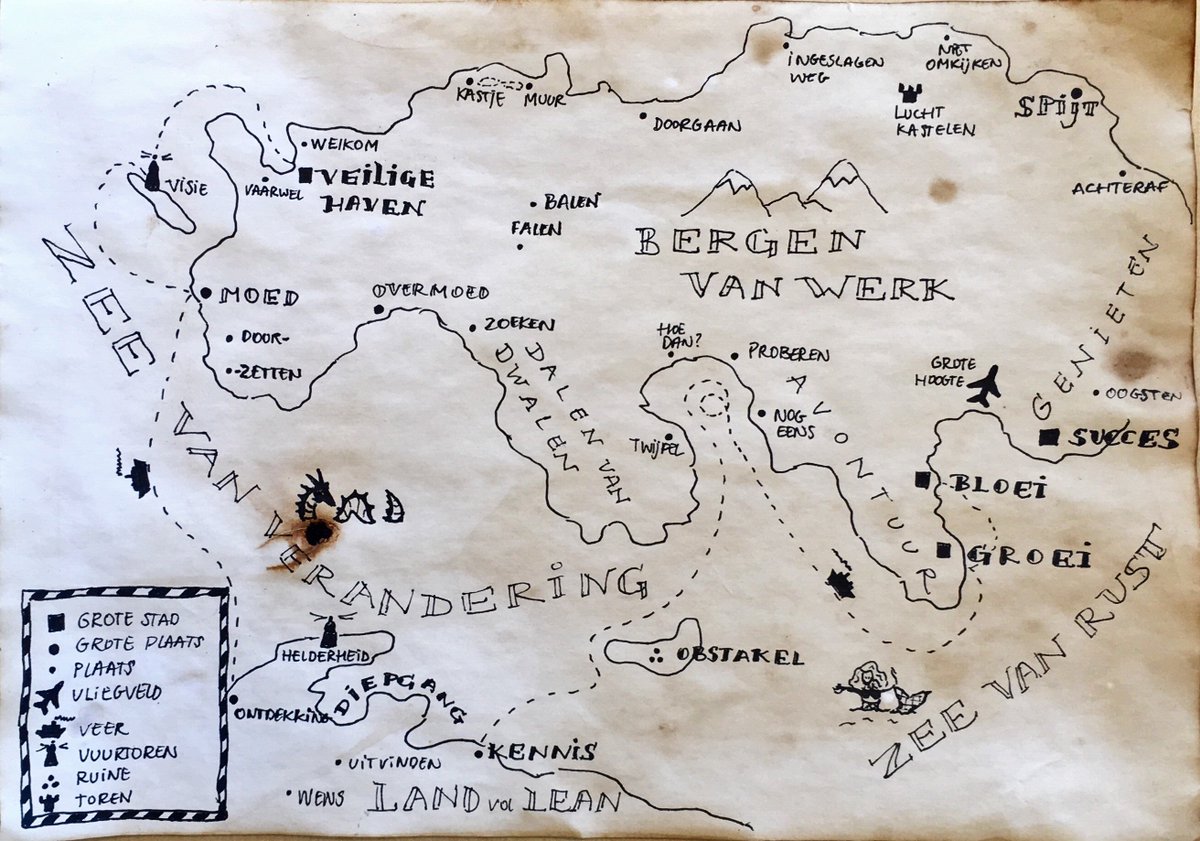 INGESLAGEN
WEG
NIET
OMKIJKEN
KASTJE
MUUR
LUCHT
KASTELEN
SPIJT
DOORGAAN
WELKOM
VISIE
VAARWEL
VEILIGE
HAVEN
ACHTERAF
BALEN
FALEN
BERGEN
VAN WERK
ZEE VAN VERANDERING
MOED
OVERMOED
DOOR-
-ZETTEN
ZOEKEN
DALEN VAN
DWALEN
HOE
DAN?
PROBEREN
AVONTUUR
NOG
EENS
TWIJFEL
GROTE
HOOGTE
GENIETEN
OOGSTEN
SUCCES
BLOEI
GROEI
ZEE VAN RUST
GROTE STAD
GROTE PLAATS
PLAATS
VLIEGVELD
VEER
VUURTOREN
RUINE
TOREN
HELDERHEID
OBSTAKEL
ONTDEKKING
DIEPGANG
KENNIS
UITVINDEN
WENS
LAND vol LEAN